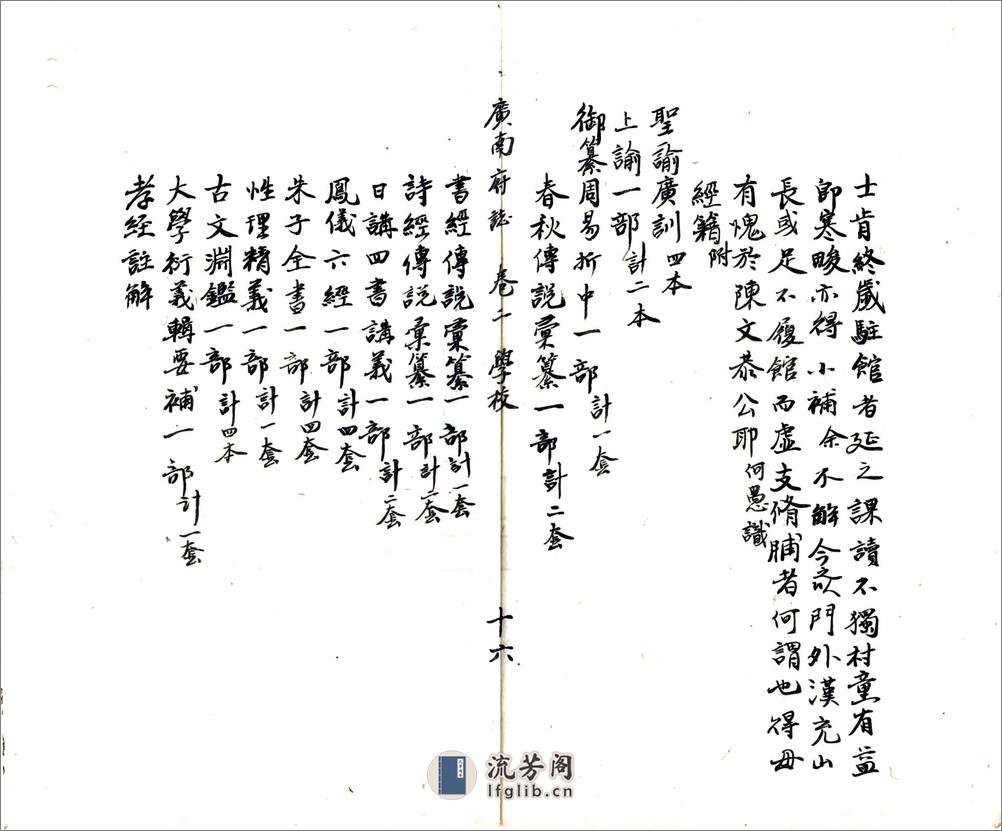 士肯終歲駐館者延之課讀不獨村童有益
即寒畯亦得小補余不解今以門外漢充山
長或足不履館而虛支脩脯者何謂也得毋
有愧於陳文恭公耶何愚識
經籍附
聖諭廣訓四本
上諭一部計二本
御纂周易折中一部計一套
春秋傳說彙纂一部計二套
廣南府誌 卷二 學校 十六
書經傳說彙纂一部計一套
詩經傳說彙纂一部計二套
日講四書講義一部計二套
鳳儀六經一部計四套
朱子全書一部計四套
性理精義一部計一套
古文淵鑑一部計四本
大學衍義輯要補一部計一套
孝經註解
流芳阁
lfglib.cn